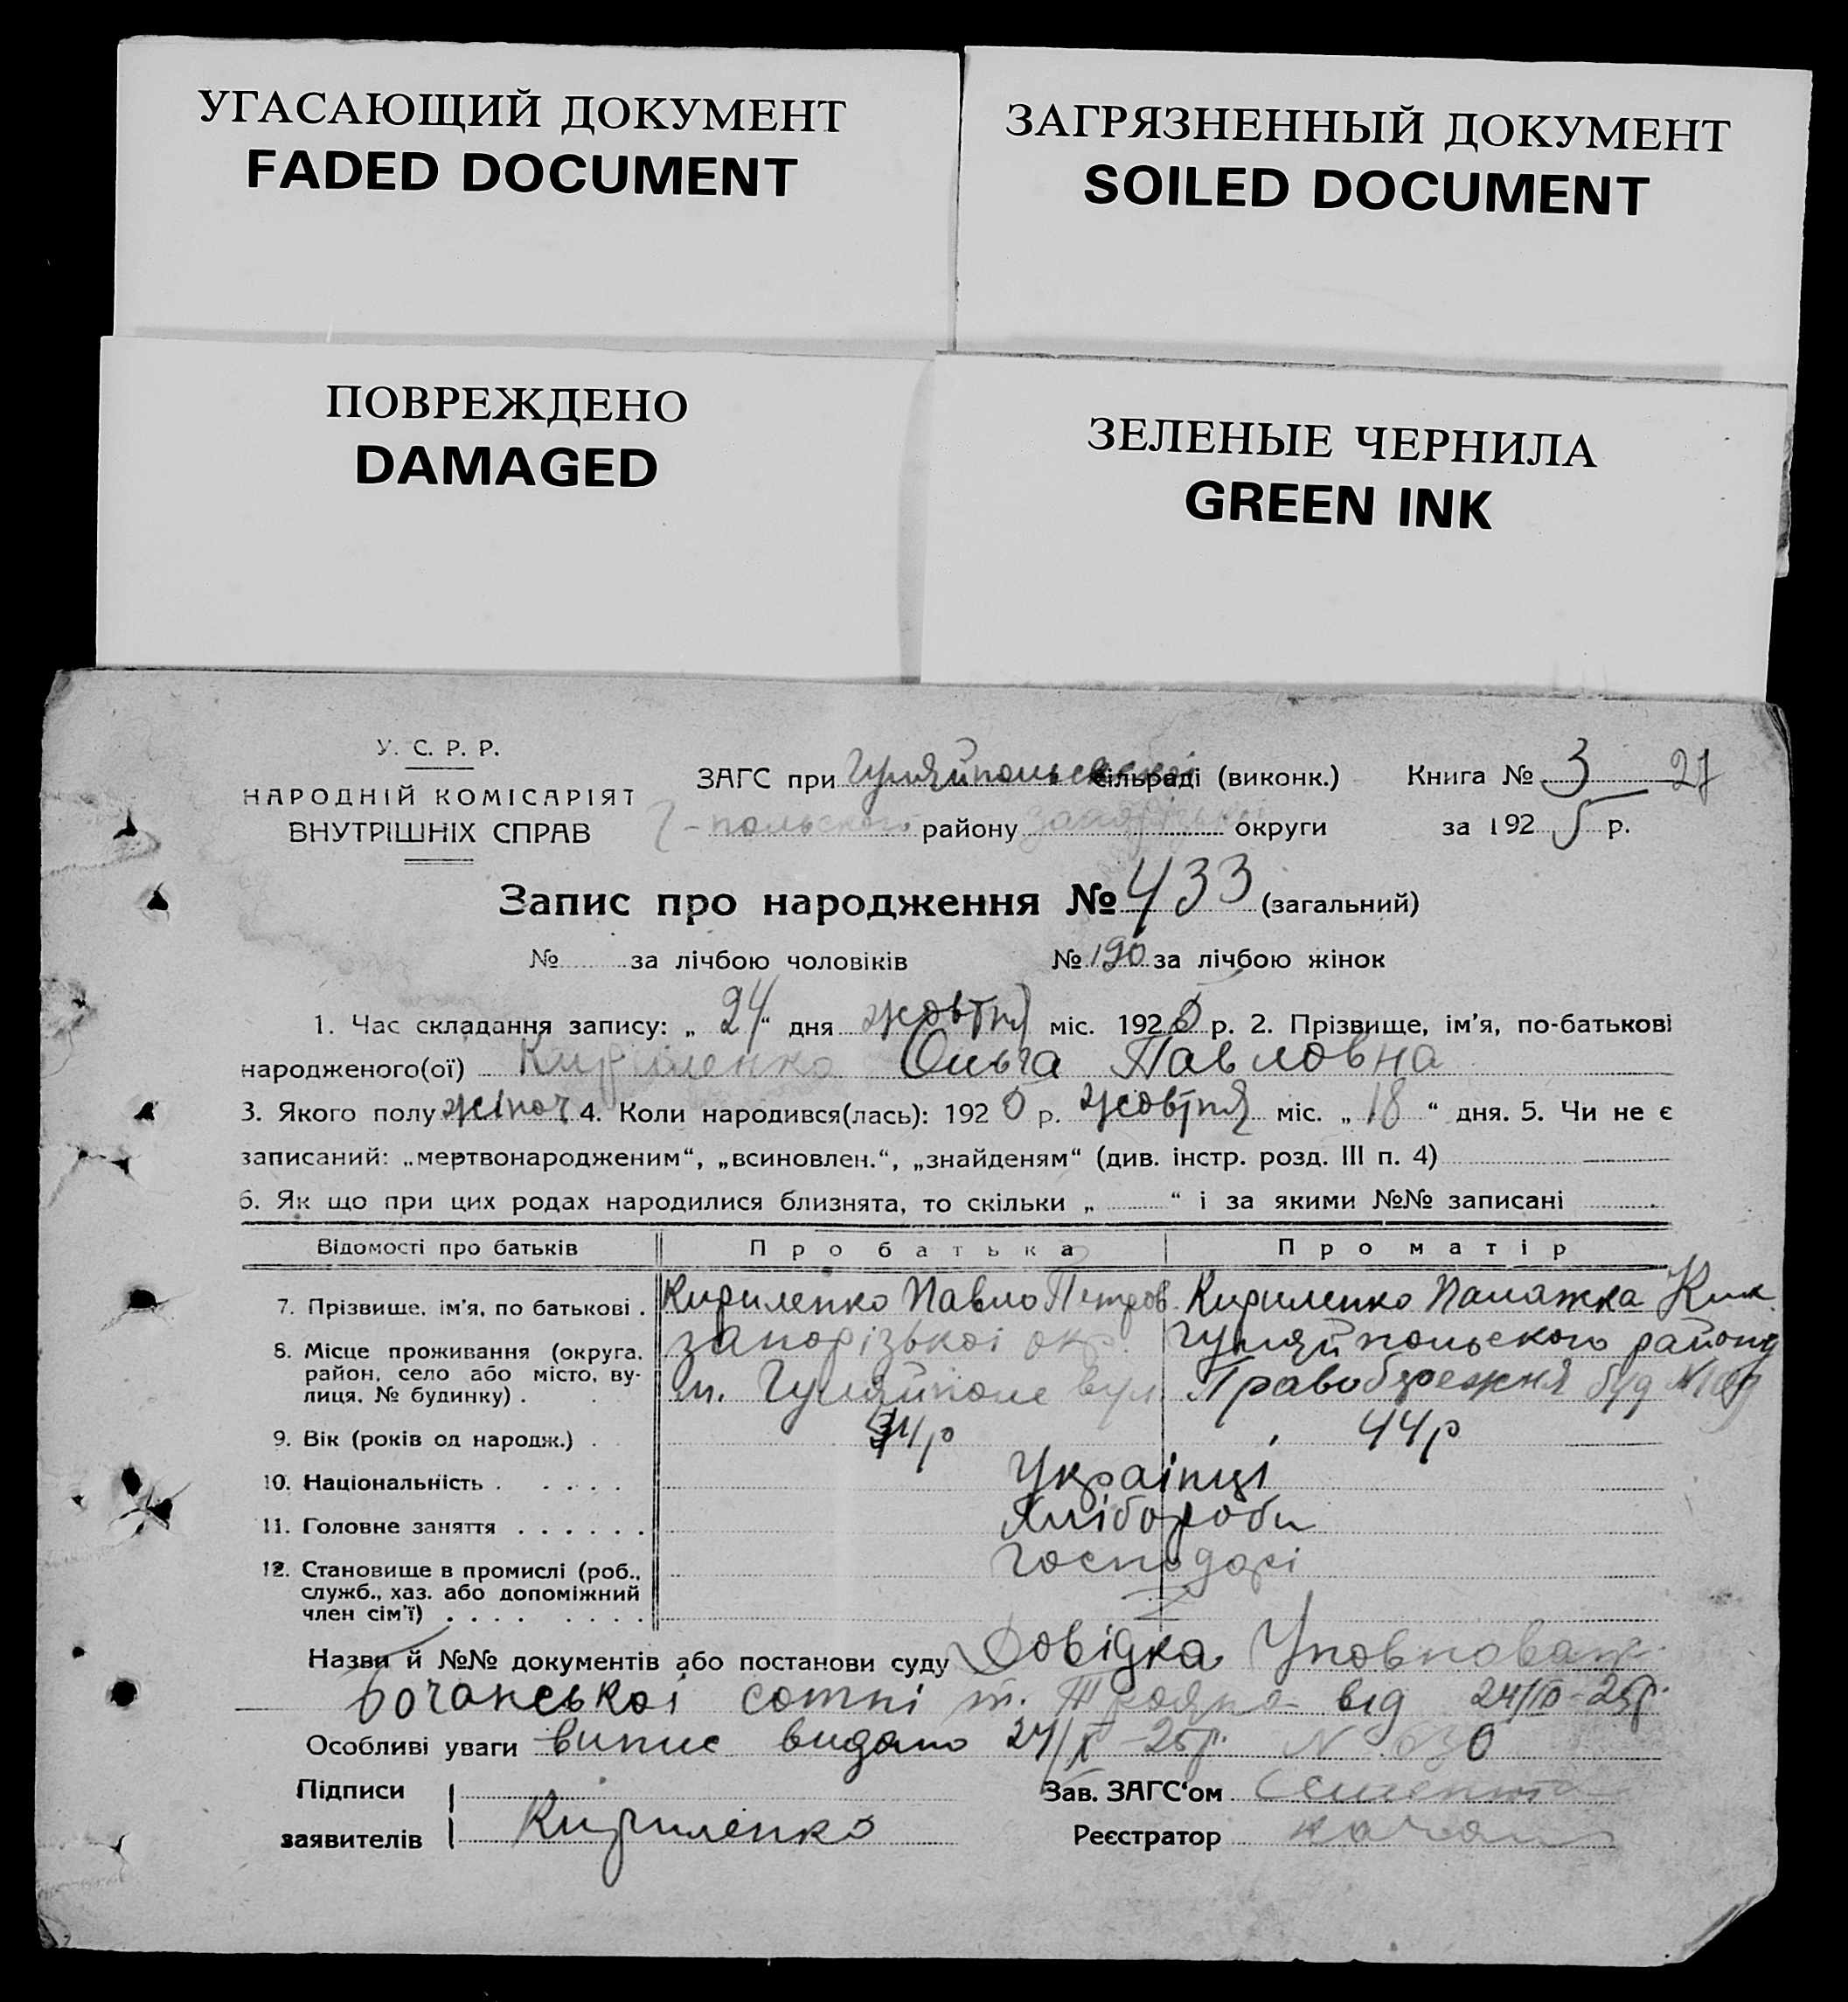 УГАСАЮЩИЙ ДОКУМЕНТ
FADED DOCUMENT
ЗАГРЯЗНЕННЫЙ ДОКУМЕНТ
SOILED DOCUMENT
ПОВРЕЖДЕНО
DAMAGED
ЗЕЛЕНЫЕ ЧЕРНИЛА
GREEN INK
У. С. Р. Р.
НАРОДНІЙ КОМІСАРІЯТ
ВНУТРІШНІХ СПРАВ
ЗАГС при Гуляйпольській сільраді (виконк.) Книга № 3 27
Г-польского району запорізької округи за 1925 р.
Запис про народження № 433 (загальний)
№ за лічбою чоловіків № 190 за лічбою жінок
1. Час складання запису: „ 24 “ дня жовтня міс. 192 р. 2. Прізвище, ім’я, по-батькові
народженого(ої) Кириленко Ольга Павловна
3. Якого полу жіноч 4. Коли народився(лась): 192 р. жовтня міс. „ 18 “ дня. 5. Чи не є
записаний: „мертвонародженим“, „всиновлен.“, „знайденям“ (див. інстр. розд. III п. 4)
6. Як що при цих родах народилися близнята, то скільки „ “ і за якими №№ записані
Відомості про батьків Про батька Про матір
7. Прізвище, ім’я, по батькові . Кириленко Павло Петров. Кириленко Палажка Ким.
8. Місце проживання (округа, запорізької окр. Гуляйпольского району
район, село або місто, ву-
лиця, № будинку) . м. Гуляйполе вул. Правобережня буд №
9. Вік (років од народж.) . 44р
10. Національність . . . . . Українці
11. Головне заняття . . . . . . Хлібороби
12. Становище в промислі (роб., господарі
служб., хаз. або допоміжний
член сім’ї) . . . . . . . .
Назви й №№ документів або постанови суду Довідка Уповноваж.
бочанської сотні т. Трояна від 24/X-25р.
Особливі уваги випис видано 24/X-25р. N 630
Підписи Зав. ЗАГС‘ом
заявителів Кириленко Реєстратор